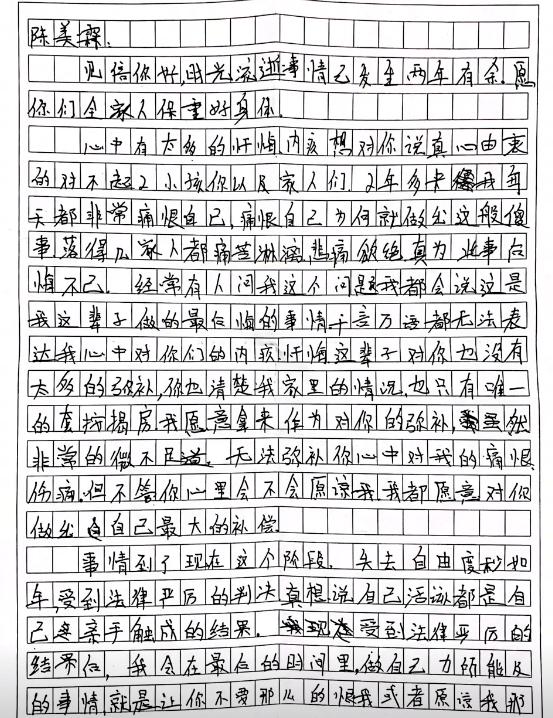 陈美霖.
见信你好,时光流逝事情已发生两年有余.愿
你们全家人保重好身体.
心中有太多的忏悔内疚想对你说真心由衷
的对不起2小孩你以及家人们.2年多来我每
天都非常痛恨自己,痛恨自己为何就做出这般傻
事.落得几家人都痛苦淋漓,悲痛欲绝真为此事后
悔不已.经常有人问我这个问题我都会说这是
我这辈子做的最后悔的事情千言万语都无法表
达我心中对你们的内疚,忏悔这辈子对你也没有
太多的弥补,你也清楚我家里的情况.也只有唯一
的套按揭房我愿意拿来作为对你的弥补,虽然
非常的微不足道.无法弥补你心中对我的痛恨
伤痛.但不管你心里会不会原谅我我都愿意对你
做出自己最大的补偿.
事情到了现在这个阶段.失去自由度秒如
年,受到法律严厉的判决真想说自己活该都是自
己亲手触成的结果.受到法律严厉的
结果后,我会在最后的时间里,做自己力所能及
的事情,就是让你不要那么的恨我或者原谅我那